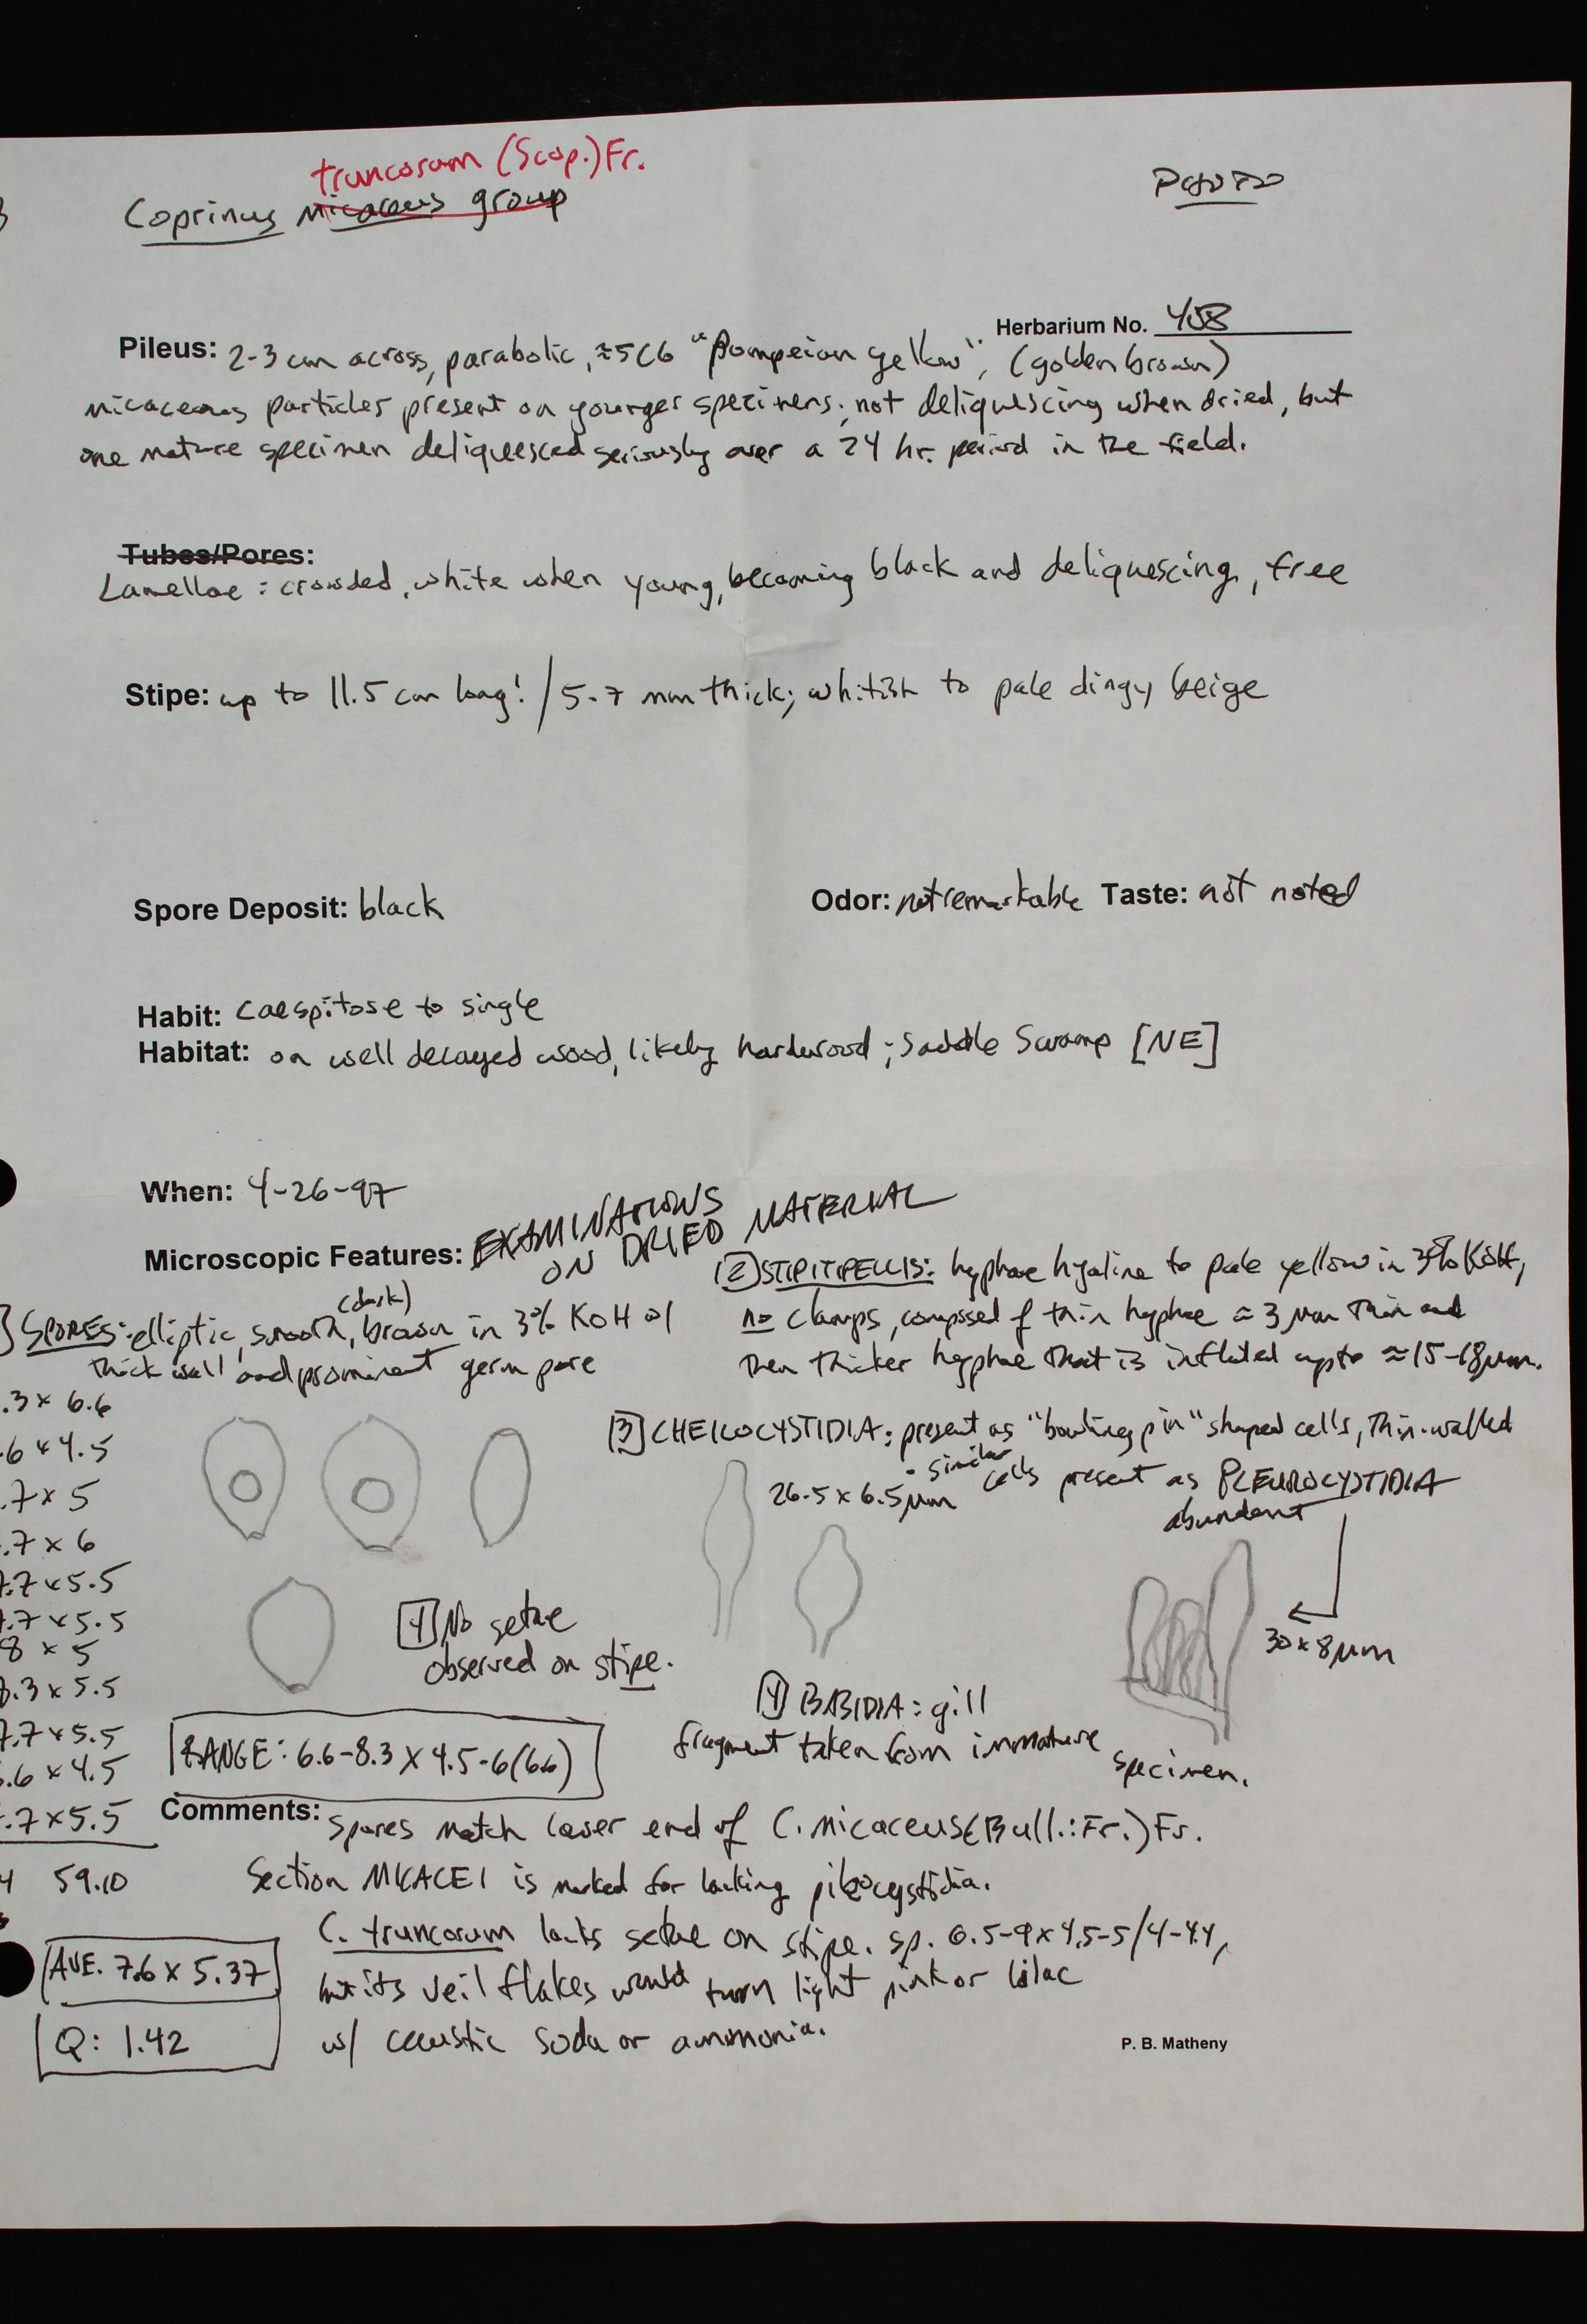 truncorum (Scop.) Fr.
Coprinus micaceus group
PHOTO
Herbarium No. 458
Pileus: 2-3 cm across, parabolic, ≈5C6 "Pompeian yellow", (golden brown)
micaceous particles present on younger specimens; not deliquescing when dried, but
one mature specimen deliquesced seriously over a 24 hr. period in the field.
Tubes/Pores:
Lamellae: crowded, white when young, becoming black and deliquescing, free
Stipe: up to 11.5 cm long! / 5-7 mm thick; whitish to pale dingy beige
Spore Deposit: black
Odor: not remarkable Taste: not noted
Habit: caespitose to single
Habitat: on well decayed wood, likely hardwood; Saddle Swamp [NE]
When: 4-26-97
Microscopic Features: EXAMINATIONS
ON DRIED MATERIAL
(dark)
] SPORES: elliptic, smooth, brown in 3% KOH w/
thick wall and prominent germ pore
.3 x 6.6
.6 x 4.5
.7 x 5
.7 x 6
7.7 x 5.5
7.7 x 5.5
8 x 5
8.3 x 5.5
7.7 x 5.5
6.6 x 4.5
.7 x 5.5
59.10
AVE. 7.6 x 5.37
Q: 1.42
[2] STIPITIPELLIS: hyphae hyaline to pale yellow in 3% KOH,
no clamps, composed of thin hyphae ≈ 3 µm thin and
then thicker hyphae that is inflated up to ≈ 15-18µm.
[3] CHEILOCYSTIDIA: present as "bowling pin" shaped cells, thin-walled
26.5 x 6.5µm
• similar cells present as PLEUROCYSTIDIA
abundant
30 x 8µm
[4] No setae
observed on stipe.
[4] BASIDIA: gill
fragment taken from immature
specimen.
RANGE: 6.6-8.3 x 4.5-6(6.6)
Comments: Spores match lower end of C. micaceus (Bull.:Fr.) Fr.
Section MICACEI is marked for lacking pileocystidia.
C. truncorum lacks setae on stipe. sp. 6.5-9 x 4.5-5/4-4.4,
but its veil flakes would turn light pink or lilac
w/ caustic soda or ammonia.
P. B. Matheny